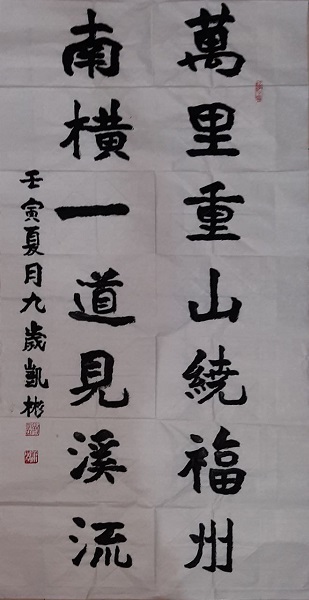 萬里重山繞福州
南橫一道見溪流
壬寅夏月九歲凱彬